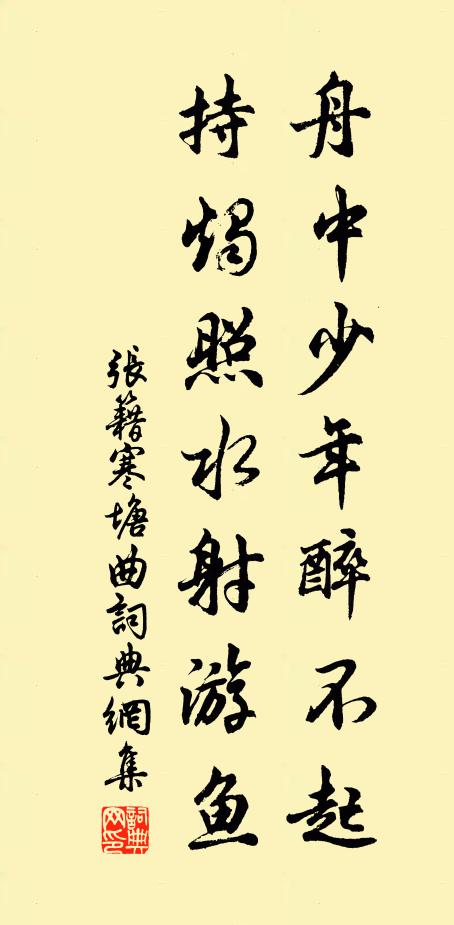 舟中少年醉不起
持燭照水射游鱼
張籍寒塘曲詞典網集
詞典网印